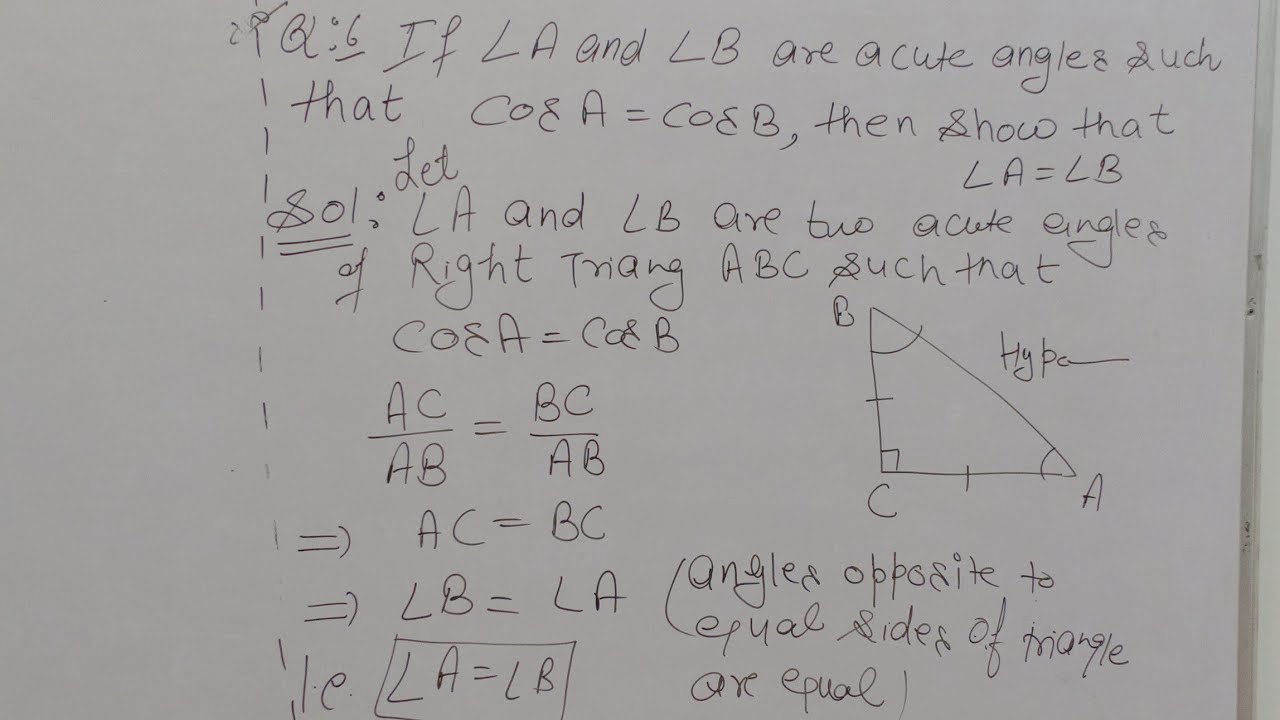 Q:6 If ∠A and ∠B are acute angles such
that Cos A = Cos B, then show that
∠A = ∠B
Let
Sol: ∠A and ∠B are two acute angles
of Right Triang ABC such that
Cos A = Cos B
AC/AB = BC/AB
⇒ AC = BC
⇒ ∠B = ∠A (angles opposite to
equal sides of triangle
are equal)
i.e. ∠A = ∠B
B
Hypo
C
A